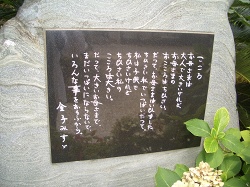 こころ
お母さまは
大人で大きいけれど、
お母さまの
おこころはちいさい。
だって、お母さまはいいました、
ちいさい私でいっぱいだって。
私は子供で
ちいさいけれど、
ちいさい私の
こころは大きい。
だって、大きいお母さまで、
まだいっぱいにならないで、
いろんな事をおもうから。
金子みすゞ